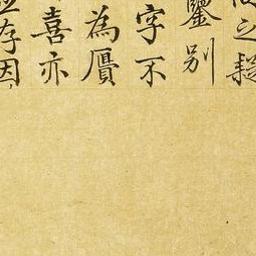 之
鑒别
字不
為贋
喜亦
存因